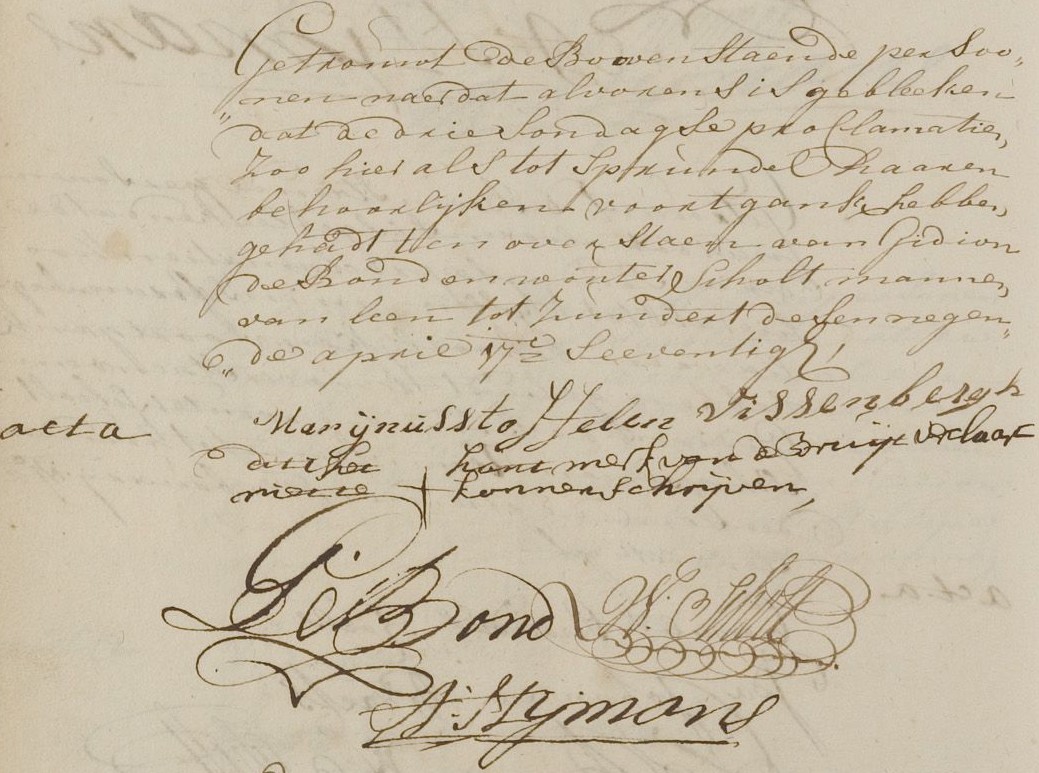 Getrouwt de Bovenstaende persoo„
„nen naerdat alvorens is gebleeken
dat de drie Sondagse proclamatien
Zoo hier als tot Sprundel haaren
behoorlijken voortgank hebben
gehadt ten overstaen van Gidion
de Bond en wouter Scholt mannen
van leen tot Zundert desen negen„
„de april 17c Seeventigh,
acta Marijnis Stoffelen Vissenbergh
dit het hant merk van de Bruijt verclaart
niet te + konnen schrijven,
G. De Bond W. Scholt
A: Stijmans